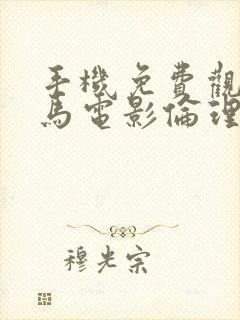 手機免費觀
馬電影倫理
穆光宗